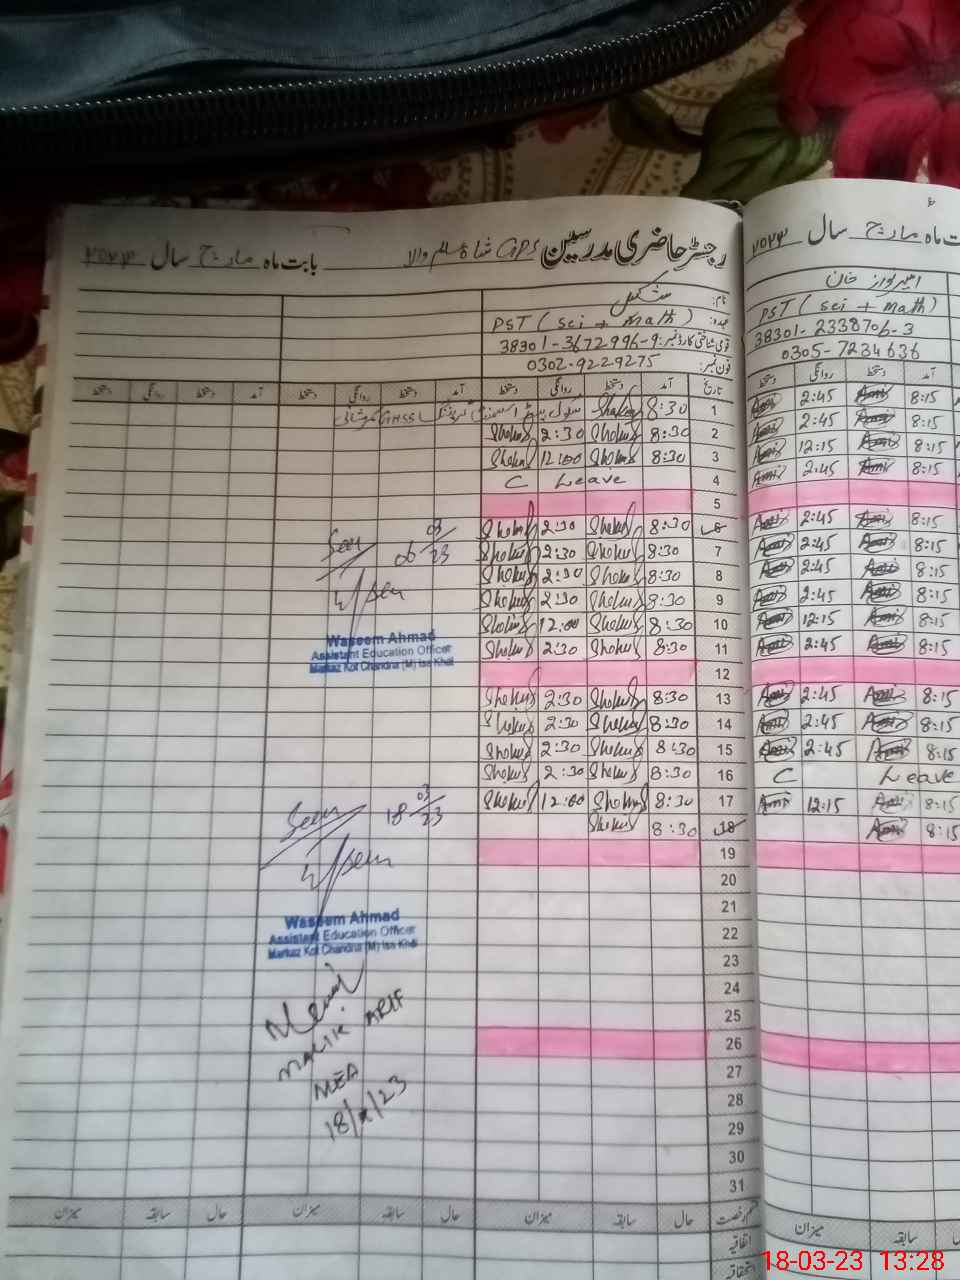 رجسٹر حاضری مدرسین GPS شاہ عالم والا بابت ماہ مارچ سال ۲۰۲۳
نام:
عہدہ: PST (Sci + Math)
قومی شناختی کارڈ نمبر: 38301-3672996-9
فون نمبر: 0302-9229275
تاریخ آمد دستخط روانگی دستخط آمد دستخط روانگی دستخط آمد دستخط روانگی دستخط
1 8:30 Shakeel GHSS
2 8:30 Shakeel 2:30 Shakeel
3 8:30 Shakeel 12:00 Shakeel
4 C Leave
5
6 8:30 Shakeel 2:30 Shakeel
7 8:30 Shakeel 2:30 Shakeel
8 8:30 Shakeel 2:30 Shakeel
9 8:30 Shakeel 2:30 Shakeel
10 8:30 Shakeel 12:00 Shakeel
11 8:30 Shakeel 2:30 Shakeel
12
13 8:30 Shakeel 2:30 Shakeel
14 8:30 Shakeel 2:30 Shakeel
15 8:30 Shakeel 2:30 Shakeel
16 8:30 Shakeel 2:30 Shakeel
17 8:30 Shakeel 12:00 Shakeel
18 8:30 Shakeel
19
20
21
22
23
24
25
26
27
28
29
30
31
قسم رخصت حال سابقہ میزان حال سابقہ میزان حال سابقہ میزان
اتفاقیہ
استحقاقیہ
Seen
06/03/23
Waseem Ahmad
Assistant Education Officer
Markaz Kot Chandna (M) Isa Khel
Seen
18/03/23
Waseem Ahmad
Assistant Education Officer
Markaz Kot Chandna (M) Isa Khel
MALIK ARIF
MEA
18/3/23
ت ماہ مارچ سال ۲۰۲۳
امیر نواز خان
PST (Sci + Math)
38301-2338706-3
0305-7234636
آمد دستخط روانگی دستخط
8:15 Amir 2:45 Amir
8:15 Amir 2:45 Amir
8:15 Amir 12:15 Amir
8:15 Amir 2:45 Amir
8:15 Amir 2:45 Amir
8:15 Amir 2:45 Amir
8:15 Amir 2:45 Amir
8:15 Amir 2:45 Amir
8:15 Amir 12:15 Amir
8:15 Amir 2:45 Amir
8:15 Amir 2:45 Amir
8:15 Amir 2:45 Amir
8:15 Amir 2:45 Amir
C Leave
8:15 Amir 12:15 Amir
8:15 Amir
سابقہ میزان
18-03-23 13:28